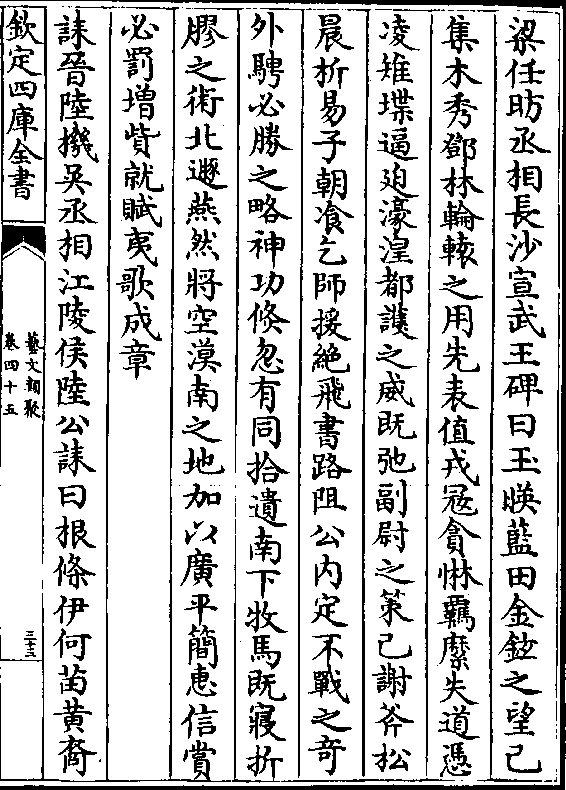 梁任昉丞相長沙宣武王碑曰玉暎藍田金鉉之望已
集木秀鄧林輪轅之用先表值戎冦貪惏羈縻失道憑
凌雉堞逼廹濠湟都護之威既弛副尉之策已謝斧松
晨折易子朝飡乞師援絶飛書路阻公内定不戰之奇
外騁必勝之略神功倐忽有同拾遺南下牧馬既寝折
膠之術北遯燕然將空漠南之地加以廣平簡恵信賞
必罰增貲就賦夷歌成章
誄晉陸機吳丞相江陵侯陸公誄曰根條伊何苗黄裔
欽定四庫全書
藝文類聚
卷四十五
三十三